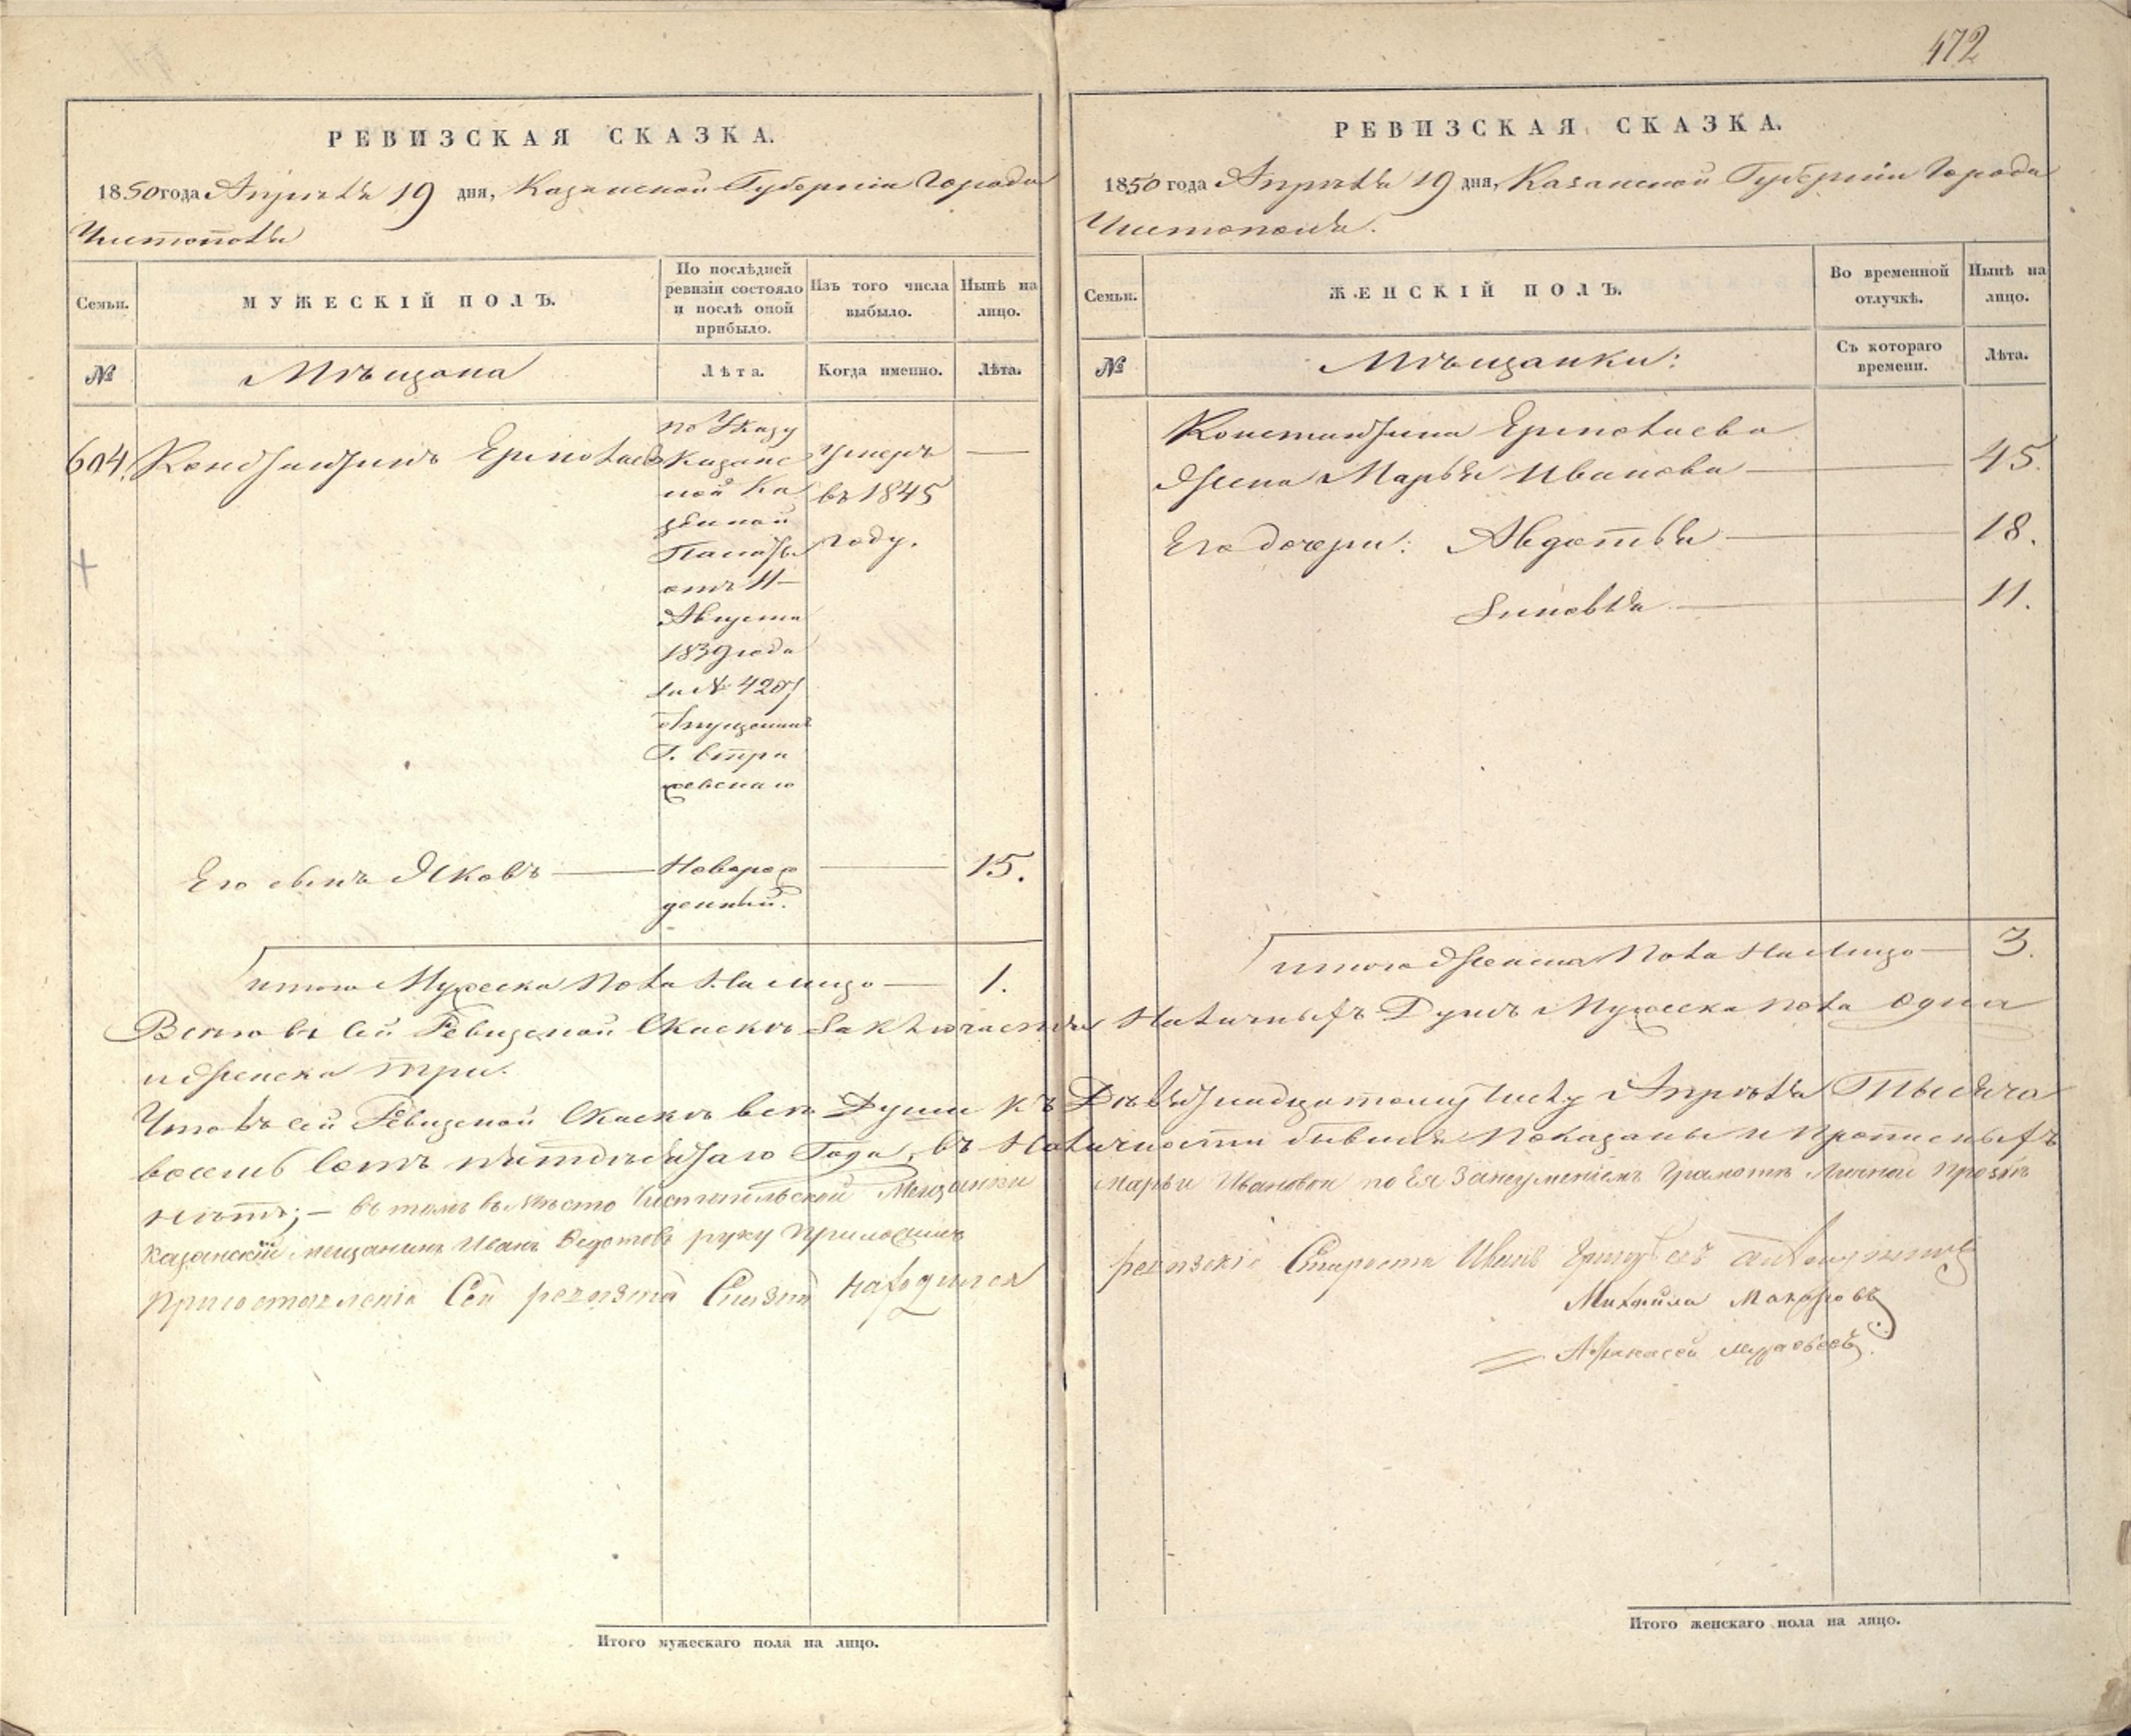 472
РЕВИЗСКАЯ СКАЗКА.
1850 года Апрѣля 19 дня, Казанской Губерніи Города
Чистополя
Семьи.
МУЖЕСКІЙ ПОЛЪ.
По послѣдней ревизіи состояло и послѣ оной прибыло.
Изъ того числа выбыло.
Нынѣ на лицо.
№
Мѣщана
Лѣта.
Когда именно.
Лѣта.
604. Константинъ Ермолаевъ
по Указу
Казанс
кой Ка
зенной
Палаты
отъ 11
Августа
1839 года
за №
отпущенникъ
Г.
Умеръ
въ 1845
году.
Его сынъ Яковъ
Новорож
денный.
15.
итого Мужеска Пола На лицо 1.
РЕВИЗСКАЯ СКАЗКА.
1850 года Апрѣля 19 дня, Казанской Губерніи Города
Чистополя.
Семьи.
ЖЕНСКІЙ ПОЛЪ.
Во временной отлучкѣ.
Нынѣ на лицо.
№
Мѣщанки:
Съ котораго времени.
Лѣта.
Константина Ермолаева
жена Марья Иванова 45.
Его дочери: Авдотья 18.
Зиновья 11.
итого женска Пола На лицо 3.
Всего въ сей Ревизской Сказкѣ Заключается Наличныхъ Душъ Мужеска пола одна
и женска три.
Что въ сей Ревизской Сказкѣ всѣ Души къ Девятнадцатому числу Апрѣля Тысяча
восемь сотъ пятдесятаго Года, въ Наличности бывшія показаны и прописныхъ
нѣтъ; – въ томъ въ мѣсто Чистопольской Мещанки Марьи Ивановой по Ея Занеумѣніемъ Грамотѣ Личной прозбѣ
Казанскій мещанинъ Иванъ Федотовъ руку приложилъ
при составленіи Сей Находился
Староста Иванъ
Михайла Макаровъ
Афанасей
Итого мужескаго пола на лицо.
Итого женскаго пола на лицо.